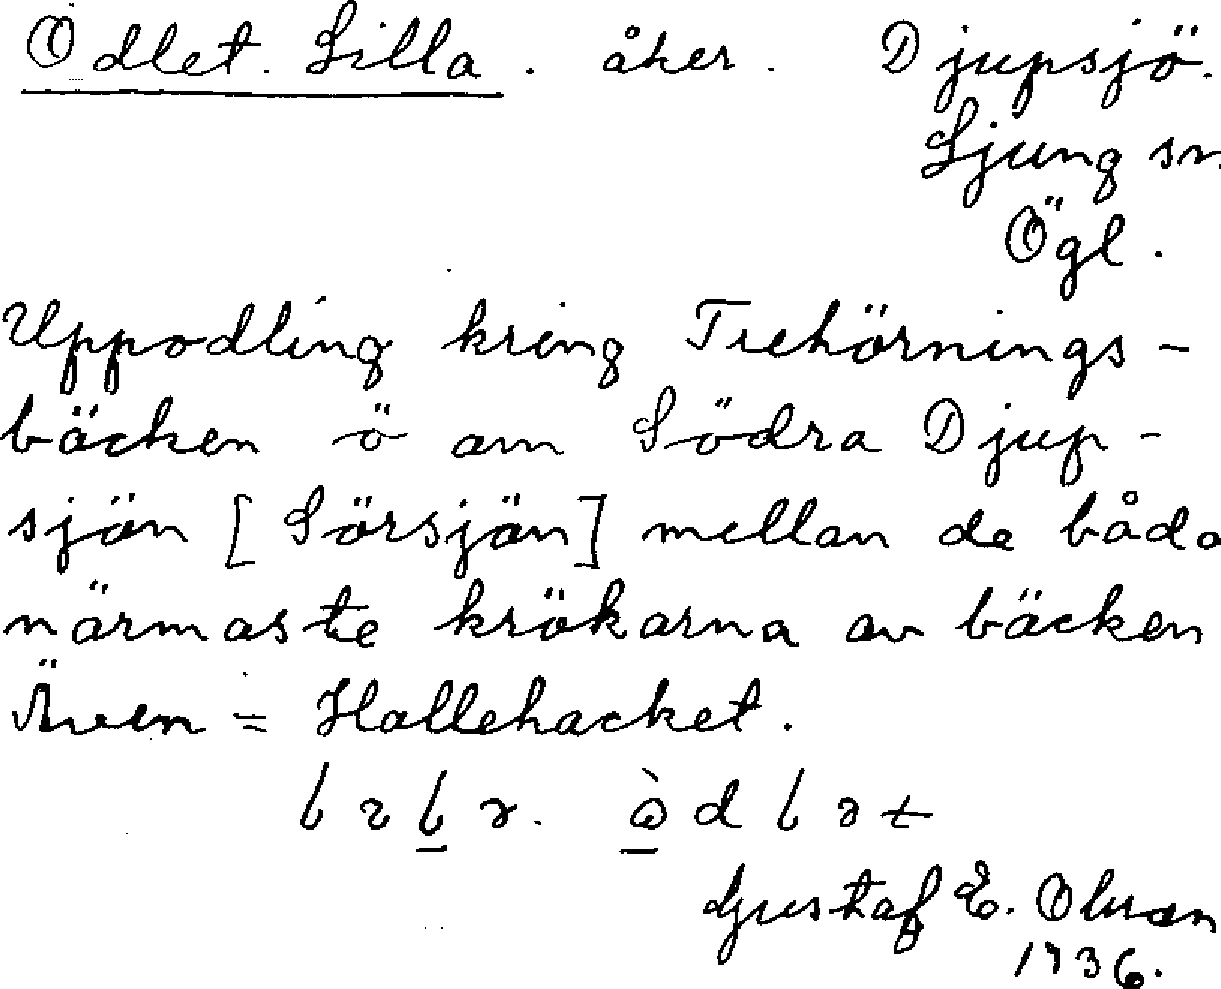 Odlet. Lilla. åker. Djupsjö.
Ljung sn.
Ögl.
Uppodling kring Trehörnings-
bäcken ö om Södra Djup-
sjön [Sörsjön] mellan de båda
närmaste krökarna av bäcken
Även = Hallehacket.
Gustaf E. Olsson
1936.